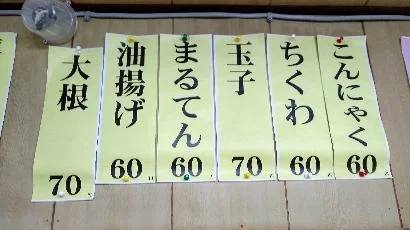 こんにゃく
60
ちくわ
60
玉子
70
まるてん
60
油揚げ
60
大根
70